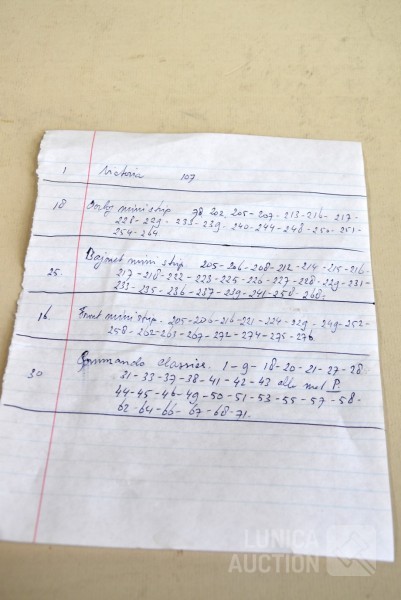 1 Victoria 107
18 Oorlog ministrip 78. 202. 205-207-213-216-217-
228-229-233-239-240-244-248-250-251-
254-264
Bajonet mini strip 205-206-208-212-214-215-216-
25. 217-218-222-223-225-226-227-228-229-231-
233-235-236-237-239-241-258-260.
16 Front ministrip. 205-206-216-221-224-229-249-252-
258-262-263-267-272-274-275-276
Commando Classics. 1-9-18-20-21-27-28
30 31-33-37-38-41-42-43 alle met P.
44-45-46-49-50-51-53-55-57-58-
62-64-66-67-68-71.
LUNICA
AUCTION